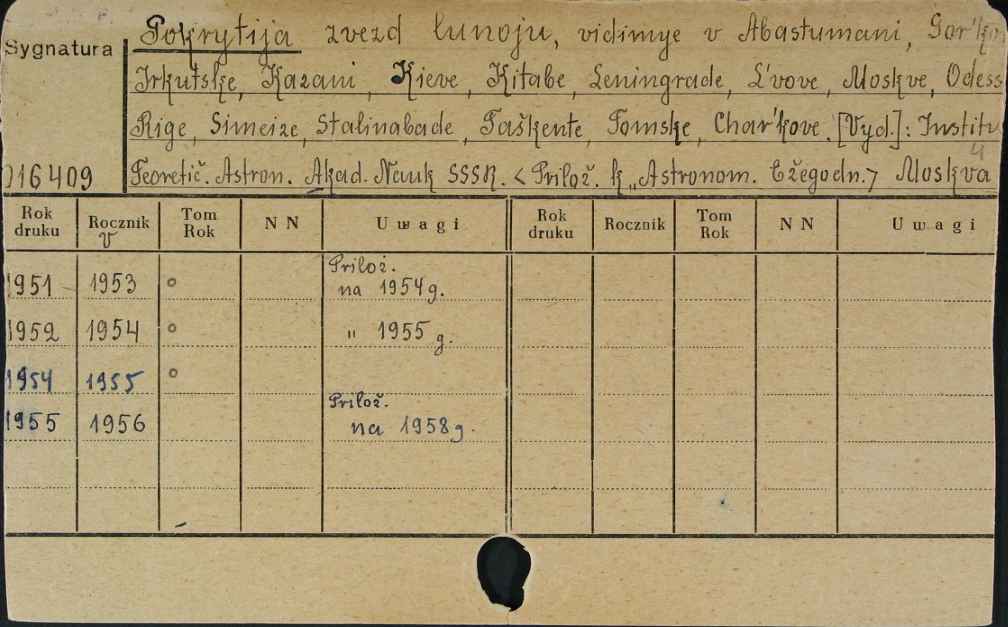 Sygnatura
Pokrytija zvezd lunoju, vidimye v Abastumani, Gor'kom
Irkutske, Kazani, Kieve, Kitabe, Leningrade, L'vove, Moskve, Odess
Rige, Simeize, Stalinabade, Taškente, Tomske, Char'kove. [Vyd.]: Institu
4
016409
Teoretič. Astron. Akad. Nauk SSSR. < Prilož. k „Astronom. Ežegodn.> Moskva
Rok druku Rocznik Tom Rok N N Uwagi Rok druku Rocznik Tom Rok N N Uwagi
V
1951 1953 o Prilož. na 1954 g.
1952 1954 o " 1955 g.
1954 1955 o
1955 1956 Prilož. na 1958 g.